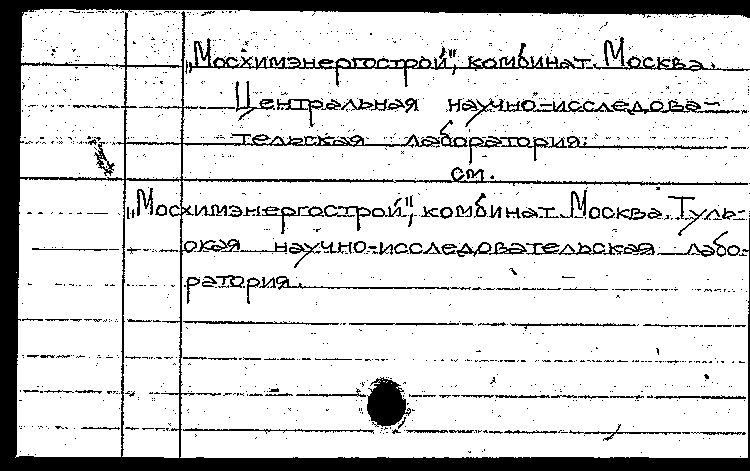 „Мосхимэнергострой", комбинат. Москва.
Центральная научно-исследова-
тельская лаборатория.
см.
„Мосхимэнергострой", комбинат. Москва. Туль-
ская научно-исследовательская лабо-
ратория.